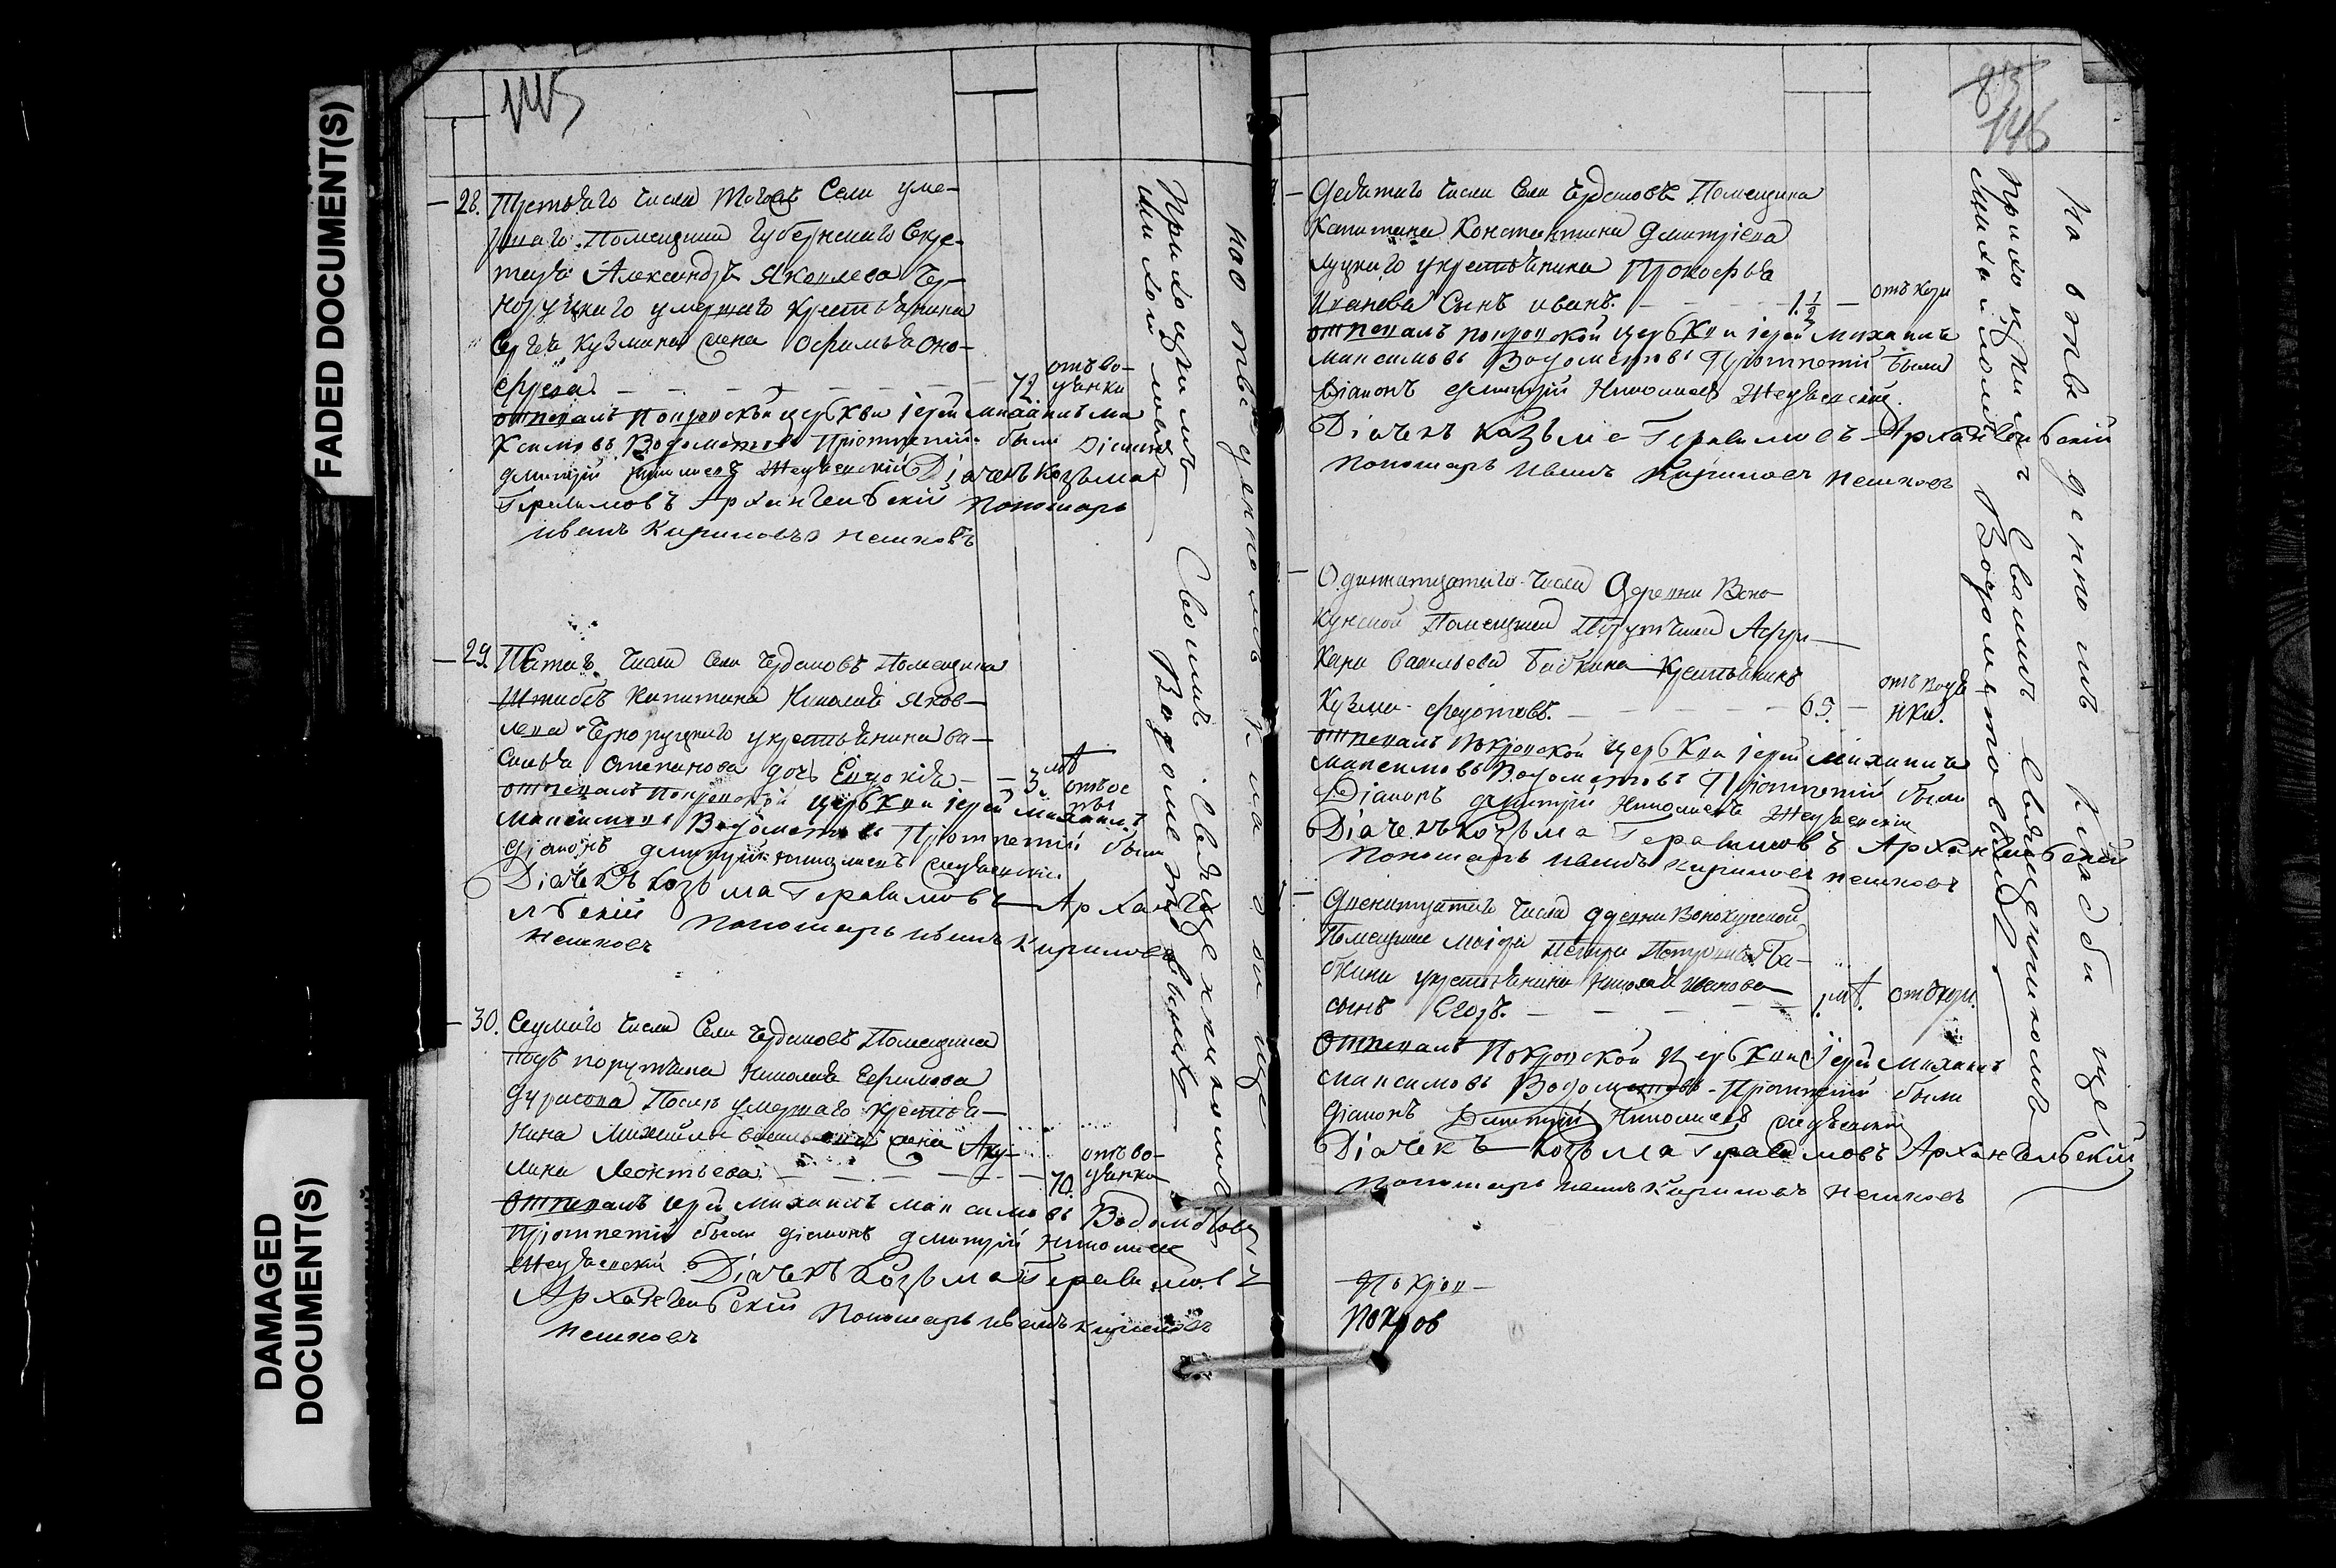 FADED DOCUMENT(S)
DAMAGED
DOCUMENT(S)
145
28. Третьяго числа тогожъ села уме-
ршаго Помещика Губернскаго Секре-
таря Александра Яковлева Чер-
норуцкаго умершаго крестьянина
Сергея Кузмина жена Офимья Оно-
фреева 72. отъ во-
дянки
отпевалъ покровской церькви iерей михаилъ ма
ксимовъ Водометовъ Причтнетiй были Дiаконъ
дмитрий николаевъ Дiачекъ козъма
Геравимовъ Архангельскiй пономарь
иванъ Кириловъ пешковъ
29. Пятаго числа села Чердановъ Помещика
Штабсъ капитана Николая Яков-
лева Черноруцкаго у крестьянина ва-
силья степанова дочь Евдокiя 3. летъ отъ ос
пы
отпевалъ покровской церькви iерей михаилъ
максимовъ Водометовъ Причтнетiй были
дiаконъ дмитрий николаевъ
Дiачекъ козъма Геравимовъ Арханге
льскiй пономарь иванъ Кириловъ
пешковъ
30. Седмаго числа села Чердановъ Помещика
подъ порутчика Николая Ефимова
Дурасова После умершаго крестья-
нина Михайлы васильева жена Аку-
лина Леонтьева 70. отъ во-
дянки
отпевалъ iерей михаилъ максимовъ Водометовъ
Причтнетiй были дiаконъ дмитрий николаевъ
Дiачекъ козъма Геравимовъ
Архангельскiй пономарь иванъ Кириловъ
пешковъ
по отведенномъ кладбище
Приходскимъ своимъ Священникомъ
Михаиломъ Водометовымъ
146
Девятаго числа села Чердановъ Помещика
Капитана Константина Дмитрiева
Луцкаго у крестьянина Прокофья
Иванова сынъ иванъ. 1 1/2 отъ кори
отпевалъ покровской церькви iерей михаилъ
максимовъ Водометовъ Причтнетiй были
дiаконъ дмитрий Николаевъ
Дiачекъ козъма Геравимовъ Архангельскiй
пономарь иванъ Кириловъ пешковъ
Одиннатцатаго числа Деревни Воно
кунской Помещика Порутчика Афри-
кана васильева Бабкина крестьянинъ
Кузма федотовъ. 65. отъ водя
нки.
отпевалъ покровской церькви iерей михаилъ
максимовъ Водометовъ Причтнетiй были
Дiаконъ дмитрий Николаевъ
Дiачекъ козъма Геравимовъ Архангельскiй
пономарь иванъ Кириловъ пешковъ
Двенатцатаго числа деревни Вонокунской
Помещика маiора Петра Петровича Ба-
бкина у крестьянина Николая иванова
сынъ Егоръ. 1. летъ. отъ кори.
отпевалъ покровской церькви iерей михаилъ
максимовъ Водометовъ Причтнетiй были
дiаконъ Дмитрiй Николаевъ
Дiачекъ козъма Геравимовъ Архангельскiй
пономарь иванъ Кириловъ пешковъ
Покров
Покров
На отведенномъ кладбище
приходскимъ своимъ священникомъ
Михаиломъ Водометовымъ